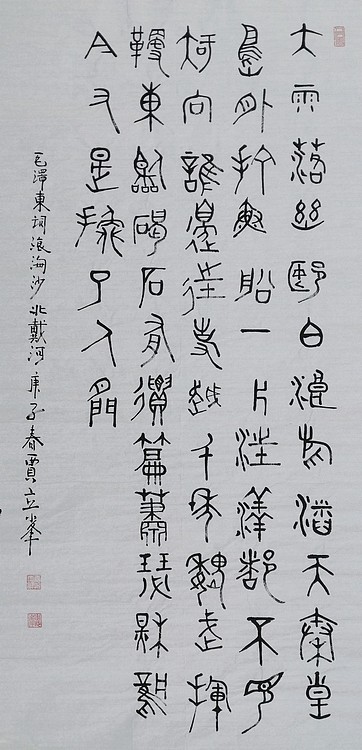 大雨落幽燕白浪滔天秦皇
島外打魚船一片汪洋都不見
知向誰邊往事越千年魏武揮
鞭東臨碣石有遺篇蕭瑟秋風
今又是換了人間
毛澤東詞浪淘沙北戴河庚子春賈立峯